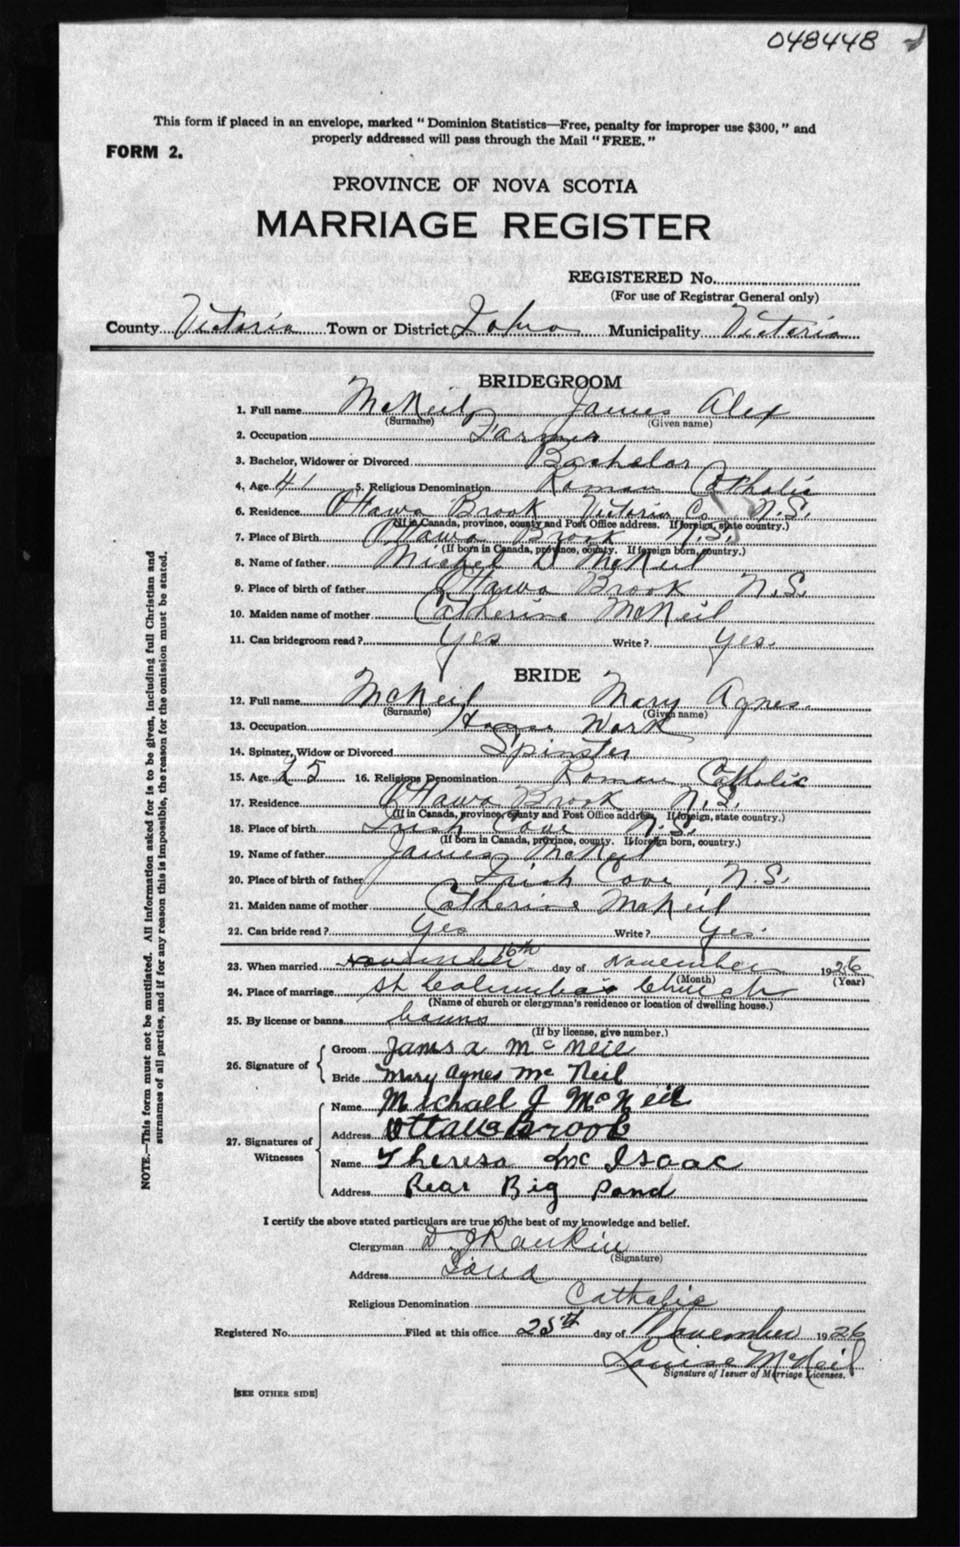 048448
This form if placed in an envelope, marked "Dominion Statistics—Free, penalty for improper use $300," and
properly addressed will pass through the Mail "FREE."
FORM 2.
PROVINCE OF NOVA SCOTIA
MARRIAGE REGISTER
REGISTERED No.
(For use of Registrar General only)
County Victoria Town or District Iona Municipality Victoria
BRIDEGROOM
1. Full name McNeil James Alex
(Surname) (Given name)
2. Occupation Farmer
3. Bachelor, Widower or Divorced Bachelor
4. Age 41 5. Religious Denomination Roman Catholic
6. Residence Ottawa Brook Victoria Co N.S.
(If in Canada, province, county and Post Office address. If foreign, state country.)
7. Place of Birth Ottawa Brook N.S.
(If born in Canada, province, county. If foreign born, country.)
8. Name of father Michel D McNeil
9. Place of birth of father Ottawa Brook N.S.
10. Maiden name of mother Catherine McNeil
11. Can bridegroom read? Yes Write? Yes.
BRIDE
12. Full name McNeil Mary Agnes.
(Surname) (Given name)
13. Occupation House Work
14. Spinster, Widow or Divorced Spinster
15. Age 25 16. Religious Denomination Roman Catholic
17. Residence Ottawa Brook N.S.
(If in Canada, province, county and Post Office address. If foreign, state country.)
18. Place of birth Irish Cove N.S.
(If born in Canada, province, county. If foreign born, country.)
19. Name of father James McNeil
20. Place of birth of father Irish Cove N.S.
21. Maiden name of mother Catherine McNeil
22. Can bride read? Yes Write? Yes.
23. When married November 16th day of November 1926
(Month) (Year)
24. Place of marriage St Columba's Church
(Name of church or clergyman's residence or location of dwelling house.)
25. By license or banns banns
(If by license, give number.)
26. Signature of
Groom James A McNeil
Bride Mary Agnes McNeil
27. Signatures of Witnesses
Name Michael J McNeil
Address Ottawa Brook
Name Theresa McIsaac
Address Rear Big Pond
I certify the above stated particulars are true to the best of my knowledge and belief.
Clergyman D J Rankin
(Signature)
Address Iona
Religious Denomination Catholic
Registered No. Filed at this office 25th day of November 1926
Louise McNeil
Signature of Issuer of Marriage Licenses.
[SEE OTHER SIDE]
NOTE.—This form must not be mutilated. All information asked for is to be given, including full Christian and
surnames of all parties, and if for any reason this is impossible, the reason for the omission must be stated.